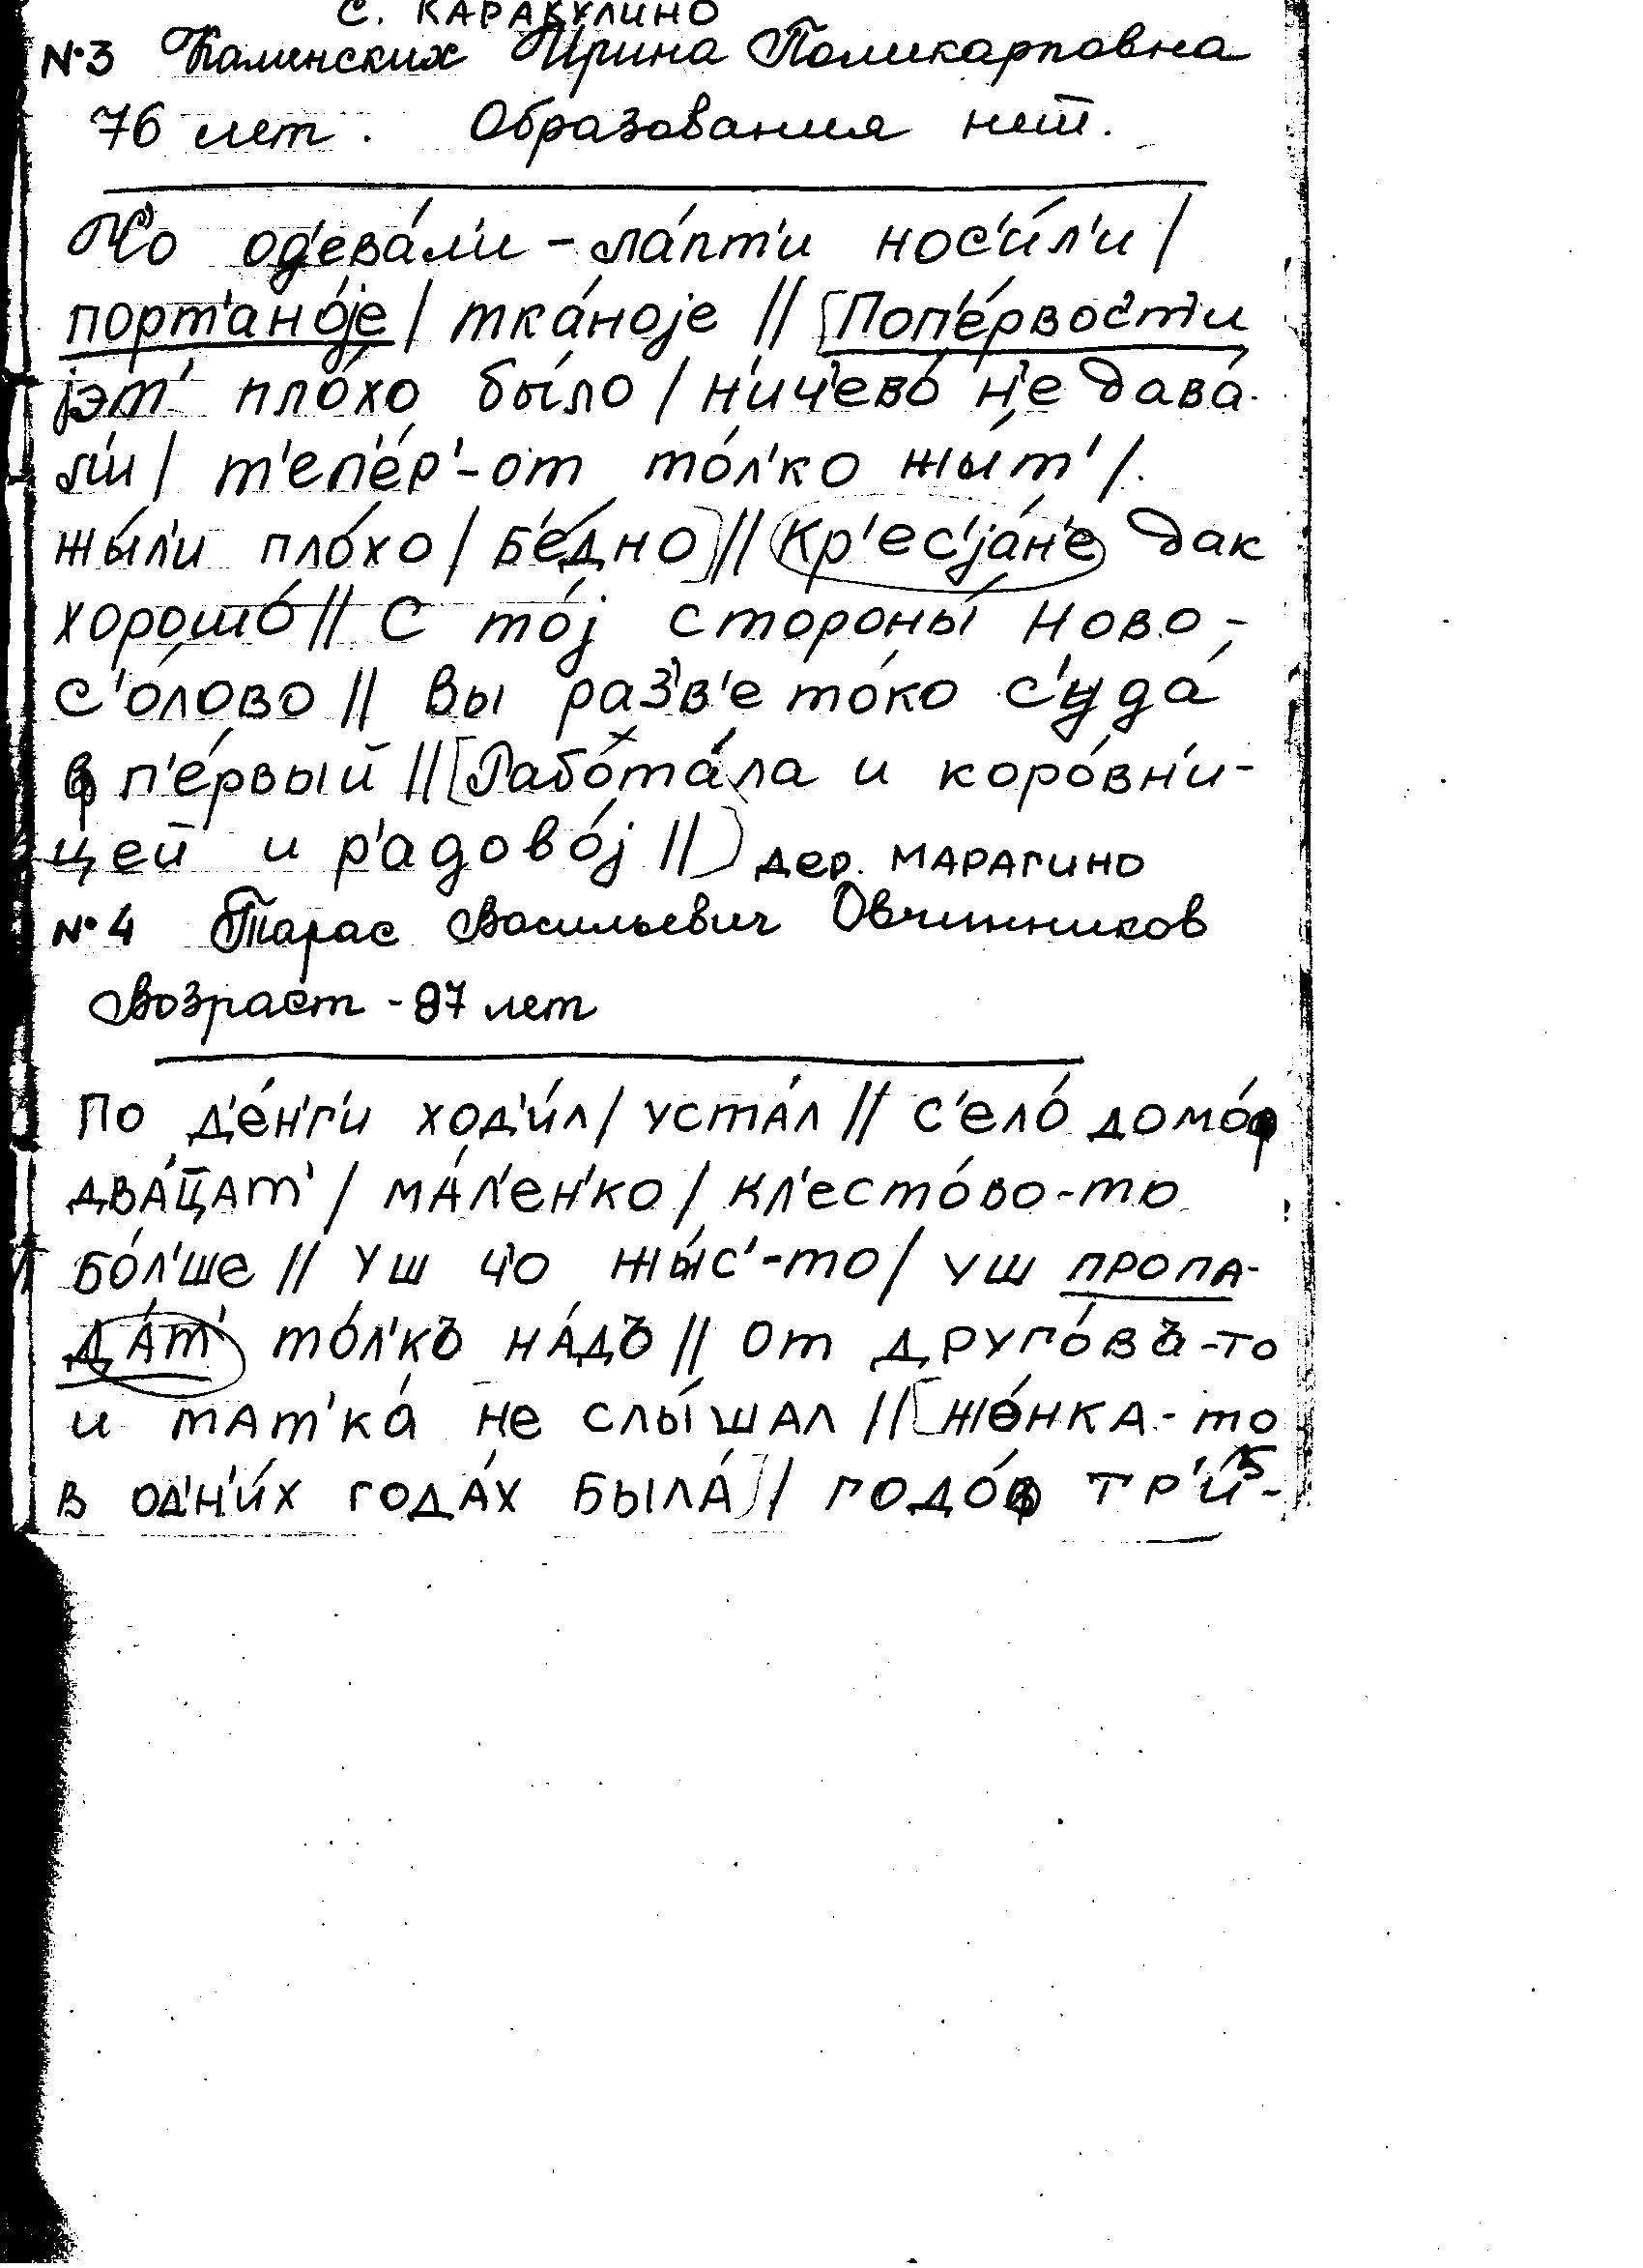 с. КАРАКУЛИНО
№3 Каменских Ирина Поликарповна
76 лет. Образования нет.
Чо од'ева́л'и – ла́пт'и нос'и́л'и /
порт'ано́jе / тка́ноjе // [Поп'е́рвост'и
jэт' пло́хо бы́ло / н'ич'ево́ н'е дава́-
л'и / т'еп'е́р'-от то́л'ко жы́т' /.
жы́л'и пло́хо / б'е́дно] // Кр'ес'jа́н'е дак
хорошо́ // С то́j стороны́ Ново-
с'о́лово // вы раз'в'е то́ко с'уда́
в п'е́рвый // [Рабо́та́ла и коро́вн'и-
цей и р'адово́j //] дер. МАРАГИНО
№4 Тарас Васильевич Овчинников
Возраст - 87 лет
По д'е́н'г'и ход'и́л / уста́л // с'ело́ домо́ф
два́ц̄ат' / ма́л'ен'ко / кл'есто́во-то
бо́л'ше // уш ч'о жы́с'-то / уш пропа-
да́т' то́л'къ на́дъ // от друго́въ-то
и тат'ка́ не слы́шал // [жо́нка-то
в од'н'и́х года́х была́] / годо́ф тр'и́-